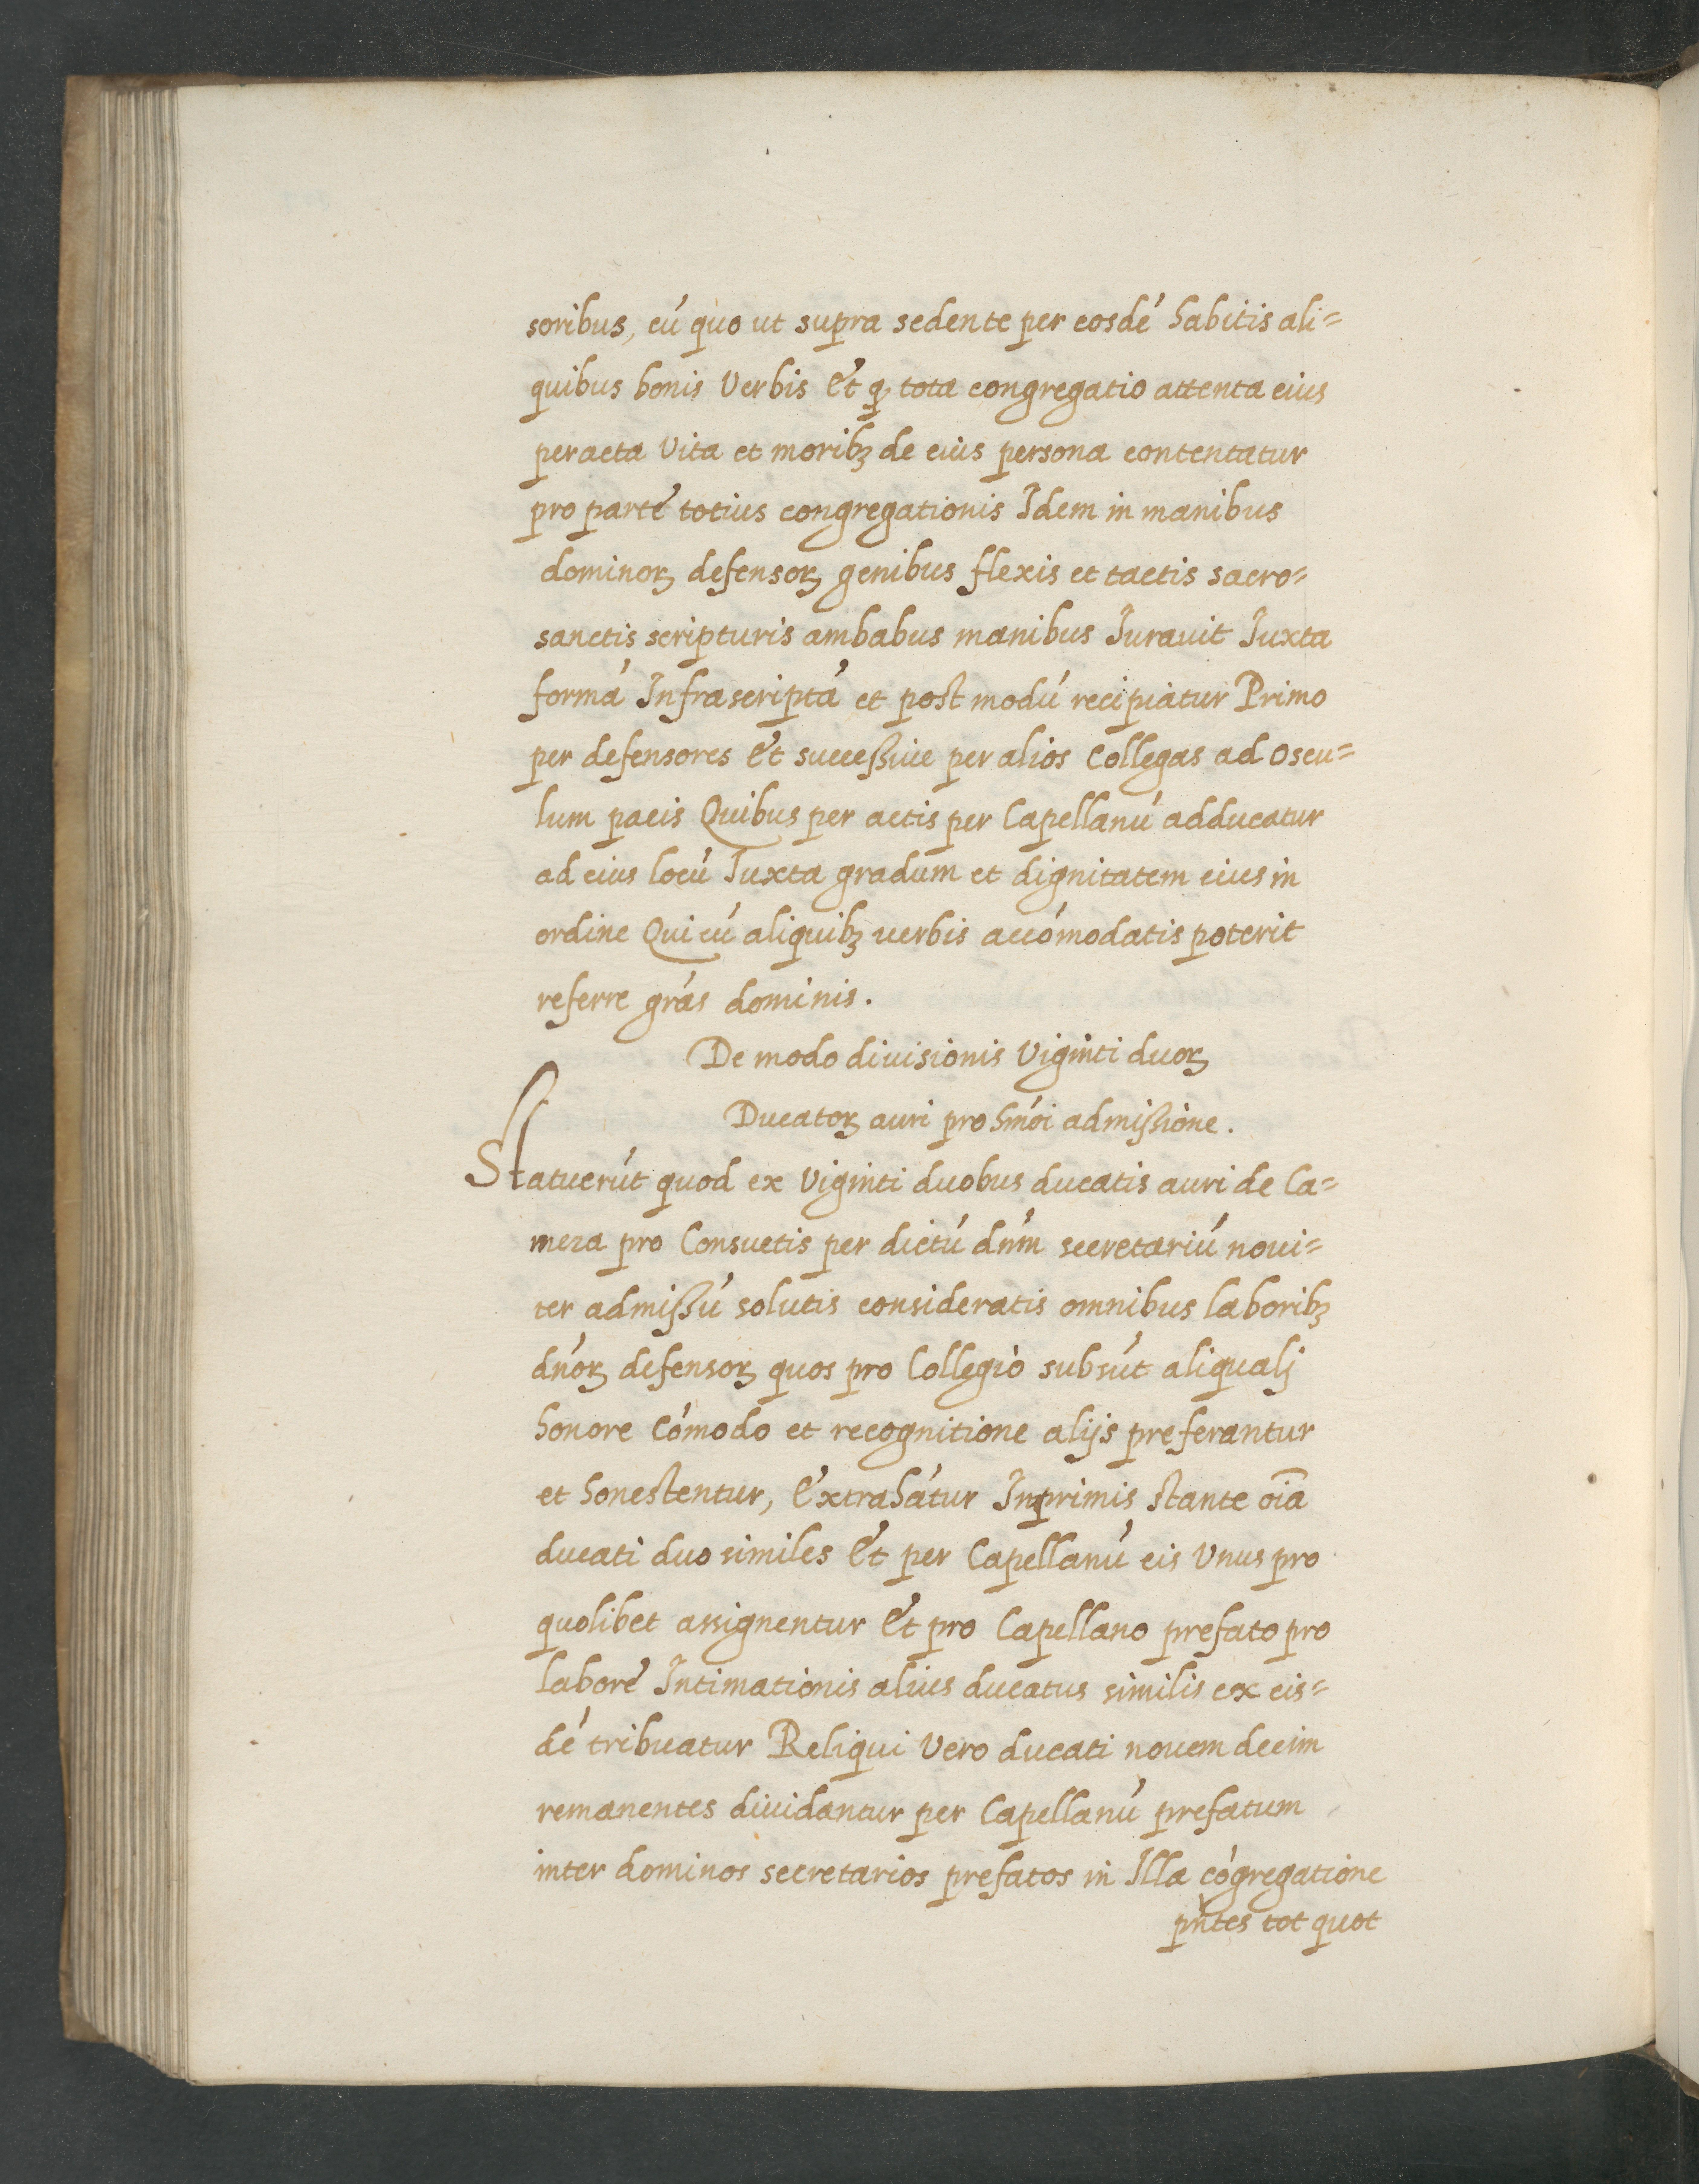 soribus, cú quo ut supra sedente per eosdé habitis ali=
quibus bonis Verbis Et ꝙ tota congregatio attenta eius
peracta Vita et moribꝫ de eius persona contentatur
pro parte totius congregationis Idem in manibus
dominoꝝ defensoꝝ genibus flexis et tactis sacro=
sanctis scripturis ambabus manibus Iurauit Iuxta
formá Infrascriptá et post modú recipiatur Primo
per defensores Et successiue per alios Collegas ad oscu=
lum pacis Quibus per actis per Capellanú adducatur
ad eius locú Iuxta gradum et dignitatem eius in
ordine Qui cú aliquibꝫ uerbis accómodatis poterit
referre grás dominis.
De modo diuisionis Viginti duoꝝ
Ducatoꝝ auri pro hmói admissione.
Statuerút quod ex Viginti duobus ducatis auri de Ca=
mera pro Consuetis per dictú dnm̄ secretariú noui=
ter admissú solutis consideratis omnibus laboribꝫ
dnóꝝ defensoꝝ quos pro Collegio subsút aliqualj
honore Cómodo et recognitione alijs preferantur
et honestentur, Extrahátur Inprimis stante oīa
ducati duo similes Et per Capellanú eis Vnus pro
quolibet assignentur Et pro Capellano prefato pro
labore Intimationis alius ducatus similis ex eis=
dé tribuatur Reliqui Vero ducati nouem decim
remanentes diuidantur per Capellanú prefatum
inter dominos secretarios prefatos in Illa cógregatione
pn̄tes tot quot